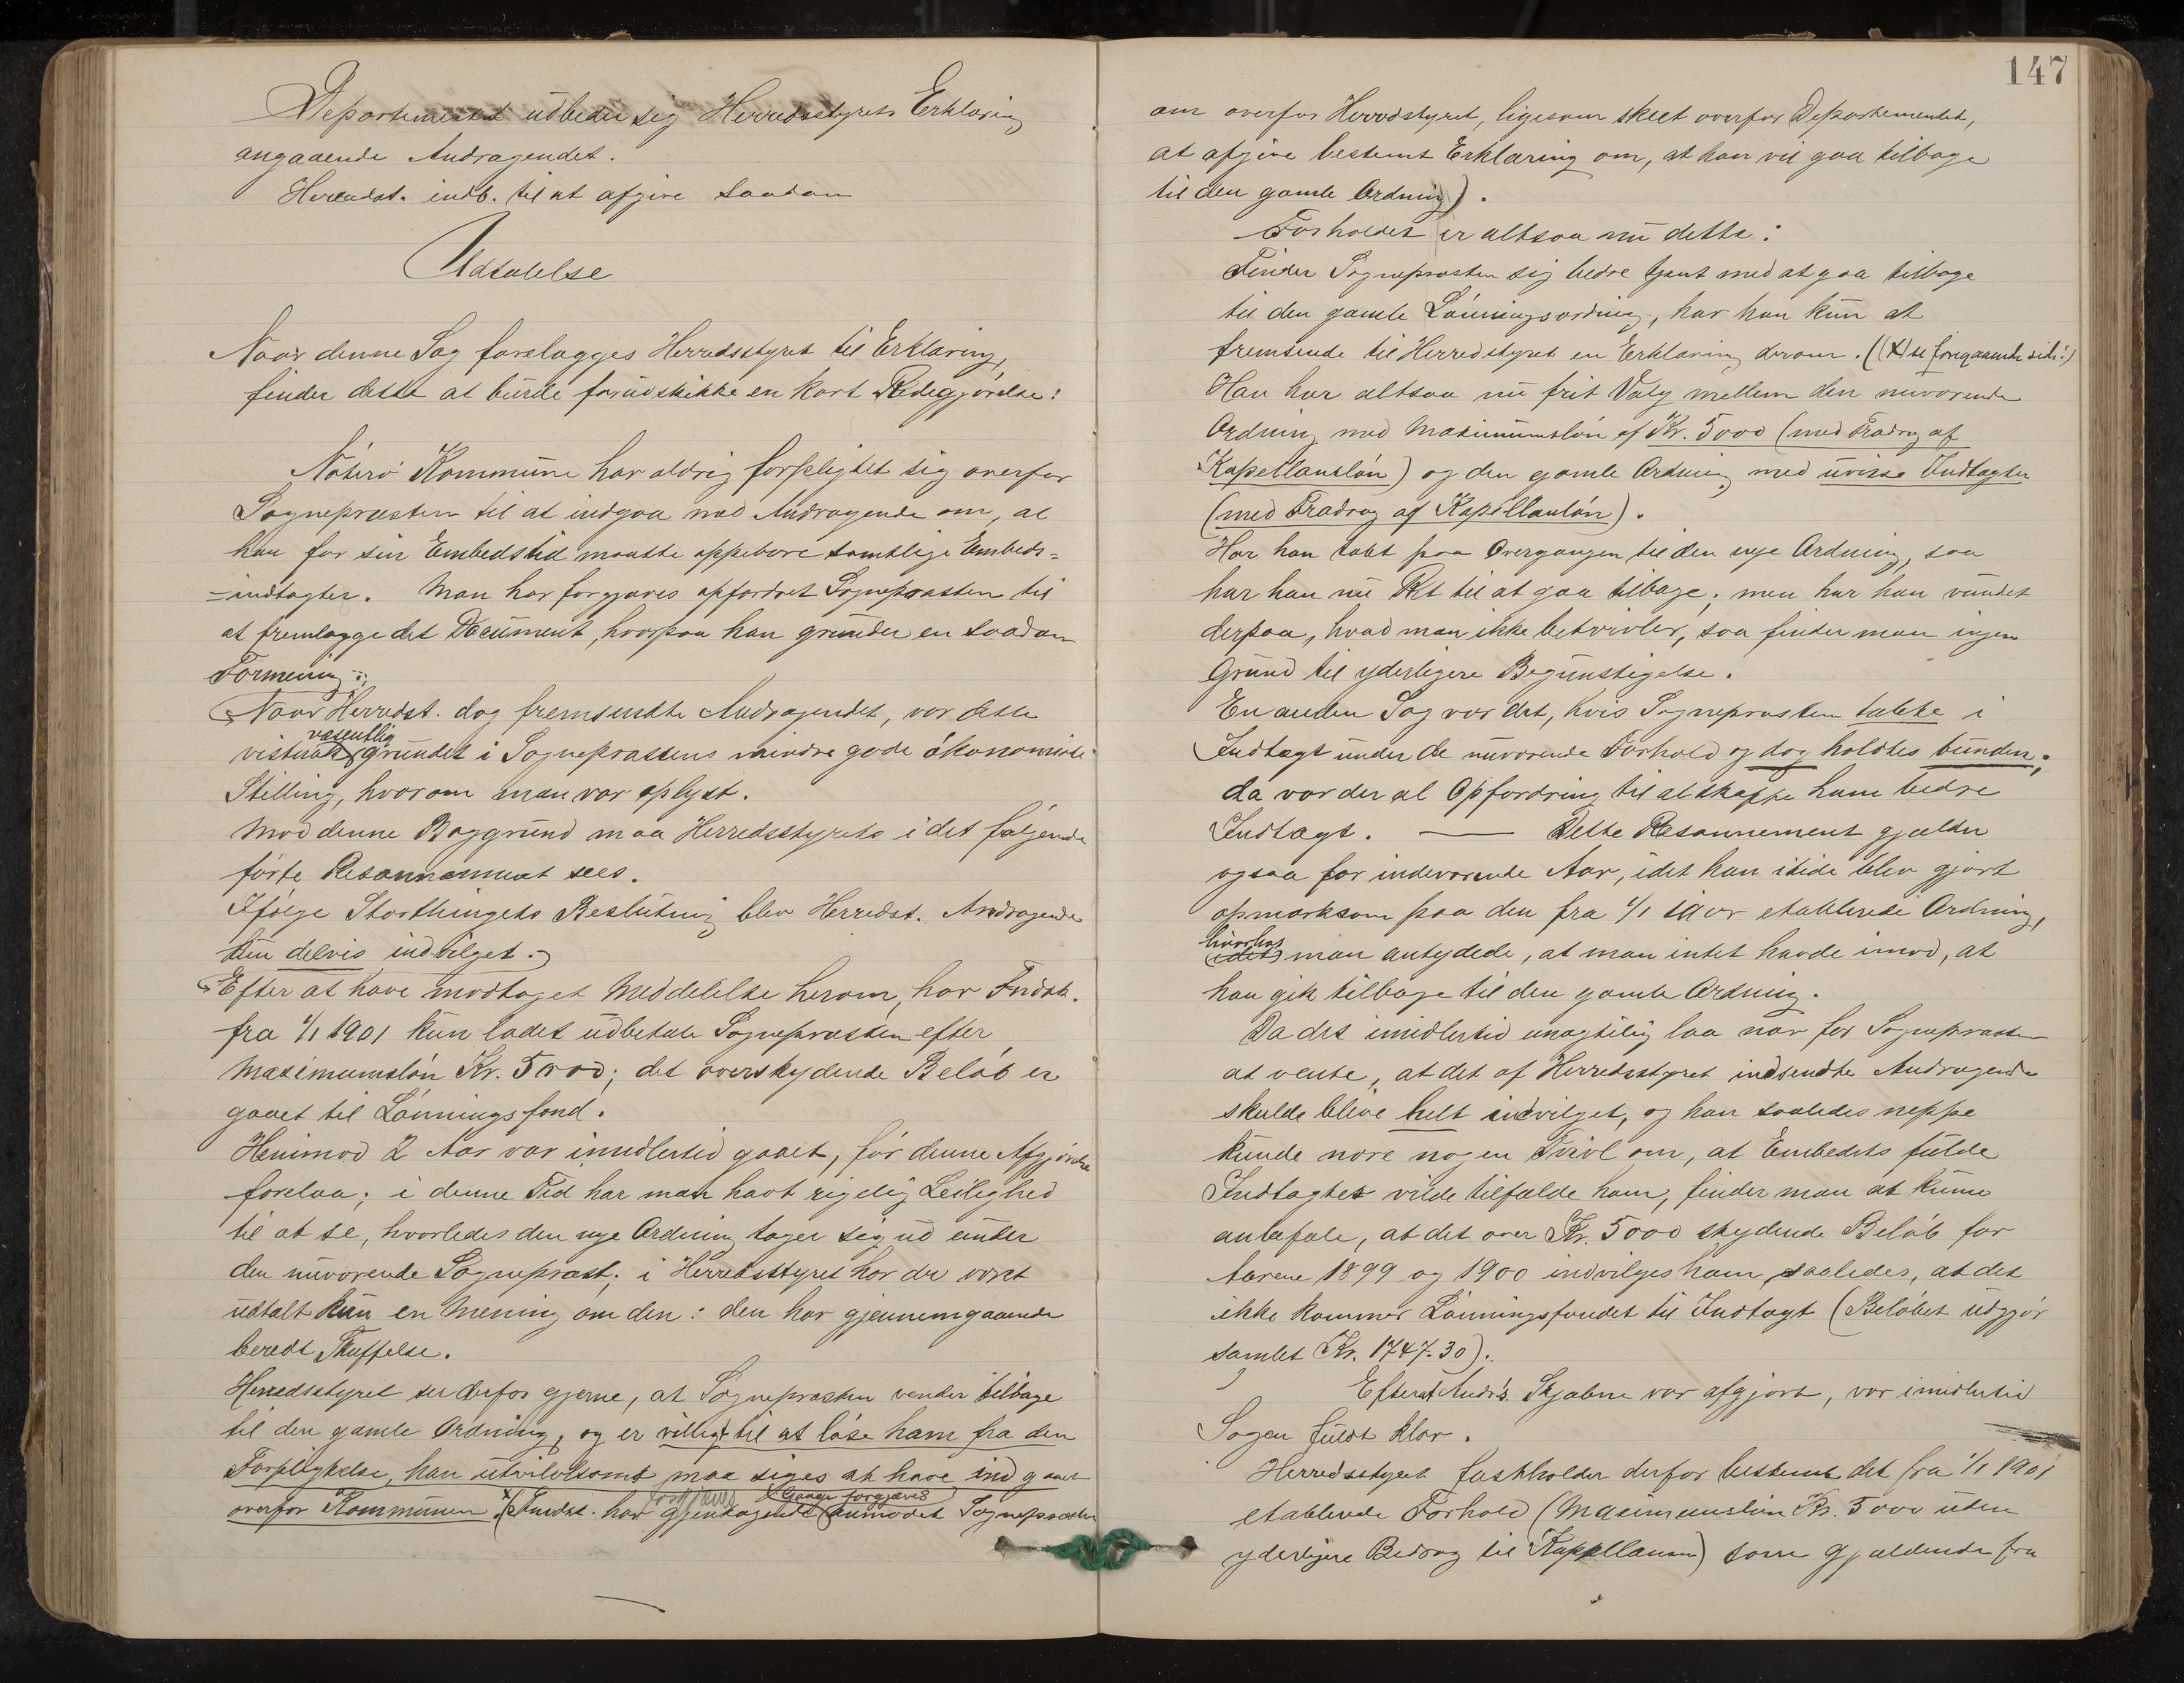 Departementet udbeder sig Herredsstyrets Erklæring
angaaende Andragendet.
Herredst. indb. til at afgive saadan
Udtalelse
Naar denne Sag forelægges Herredsstyret til Erklæring,
finder dette at burde forudskikke en kort Redegjørelse:
Nøterø Kommune har aldrig forpligtet sig overfor
Sognepræsten til at indgaa med Andragende om, at
han for sin Embedstid maatte oppebære samtlige Embeds-
-indtægter. Man har forgjæves opfordret Sognepræsten til
at fremlægge det Document, hvorpaa han grunder en saadan
Formening.
Naar Herredst. dog fremsendte Andragendet, var dette
væsentlig
grundet i Sognepræstens mindre gode økonomiske
Stilling, hvorom man var oplyst.
Mod denne Baggrund maa Herredsstyrets i det følgende
førte Resonnement sees.
Ifølge Storthingets Beslutning blev Herredst. Andragende
kun delvis indvilget.
Efter at have modtaget Meddelelse herom, har Fmdsk.
fra 1/1 1901 kun ladet udbetale Sognepræsten efter
Maximumsløn Kr. 5000; det overskydende Beløb er
gaaet til Lønningsfond.
Henimod 2 Aar var imidlertid gaaet, før denne Afgjørelse
forelaa; i denne Tid har man havt rigelig Leilighed
til at se, hvorledes den nye Ordning tager sig ud under
den nuværende Sognepræst; i Herredsstyret har der været
udtalt kun en Mening om den: den har gjennemgaaende
beredt Skuffelse.
Herredsstyret ser derfor gjerne, at Sognepræsten vender tilbage
til den gamle Ordning, og er villigt til at løse ham fra den
Forpligtelse, han utvivlsomt maa siges at have indgaaet
forgjæves Gange forgjæves
overfor Kommunen. x (Fmdsk. har gjentagende anmodet Sognepræsten
147
om overfor Herredstyret, ligesom skeet overfor Departementet,
at afgive bestemt Erklæring om, at han vil gaa tilbage
til den gamle Ordning).
Forholdet er altsaa nu dette:
Finder Sognepræsten sig bedre tjent med at gaa tilbage
til den gamle Lønningsordning, har han kun at
fremsende til Herredstyret en Erklæring derom. ((x) se foregaaende side!)
Han har altsaa nu frit Valg mellem den nuværende
Ordning med Maximumsløn af Kr. 5000 (med Fradrag af
Kapellanløn) og den gamle Ordning med uvisse Indtægter
(med Fradrag af Kapellanløn).
Har han tabt paa Overgangen til den nye Ordning, saa
har han nu Ret til at gaa tilbage; men har han vundet
derpaa, hvad man ikke betvivler, saa finder man ingen
Grund til yderligere Begunstigelse.
En anden Sag var det, hvis Sognepræsten tabte i
Indtægt under de nuværende Forhold og dog holdtes bunden;
da var der al Opfordring til at skaffe ham bedre
Indtægt. — Dette Resonnement gjælder
ogsaa for indeværende Aar, idet han itide blev gjort
opmærksom paa den fra 1/1 1901 etablerede Ordning,
hvorhos
idet man antydede, at man intet havde imod, at
han gik tilbage til den gamle Ordning.
Da det imidlertid unægtelig laa nær for Sognepræsten
at vente, at det af Herredsstyret indsendte Andragende
skulde blive helt indvilget, og han saaledes neppe
kunde nære nogen Tvivl om, at Embedets fulde
Indtægter vilde tilfalde ham, finder man at kunne
anbefale, at det over Kr. 5000 skydende Beløb for
Aarene 1899 og 1900 indvilges ham, saaledes, at det
ikke kommer Lønningsfondet til Indtægt (Beløbet udgjør
samlet Kr. 1747.30).
Efterat Andr's Skjæbne var afgjort, var imidlertid
Sagen fuldt klar.
Herredsstyret fastholder derfor bestemt det fra 1/1 1901
etablerede Forhold (Maximumsløn Kr. 5000 uden
yderligere Bidrag til Kappellanen) som gjældende fra